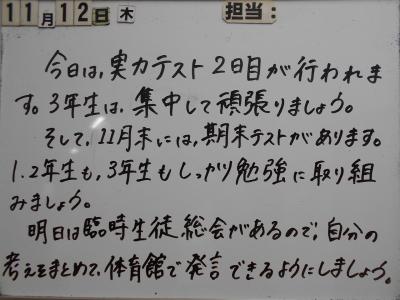 11月12日木 担当:
今日は、実力テスト2日目が行われま
す。3年生は、集中して頑張りましょう。
そして、11月末には、期末テストがあります。
1.2年生も、3年生もしっかり勉強に取り組
みましょう。
明日は臨時生徒総会があるので、自分の
考えをまとめて、体育館で発言できるようにしましょう。